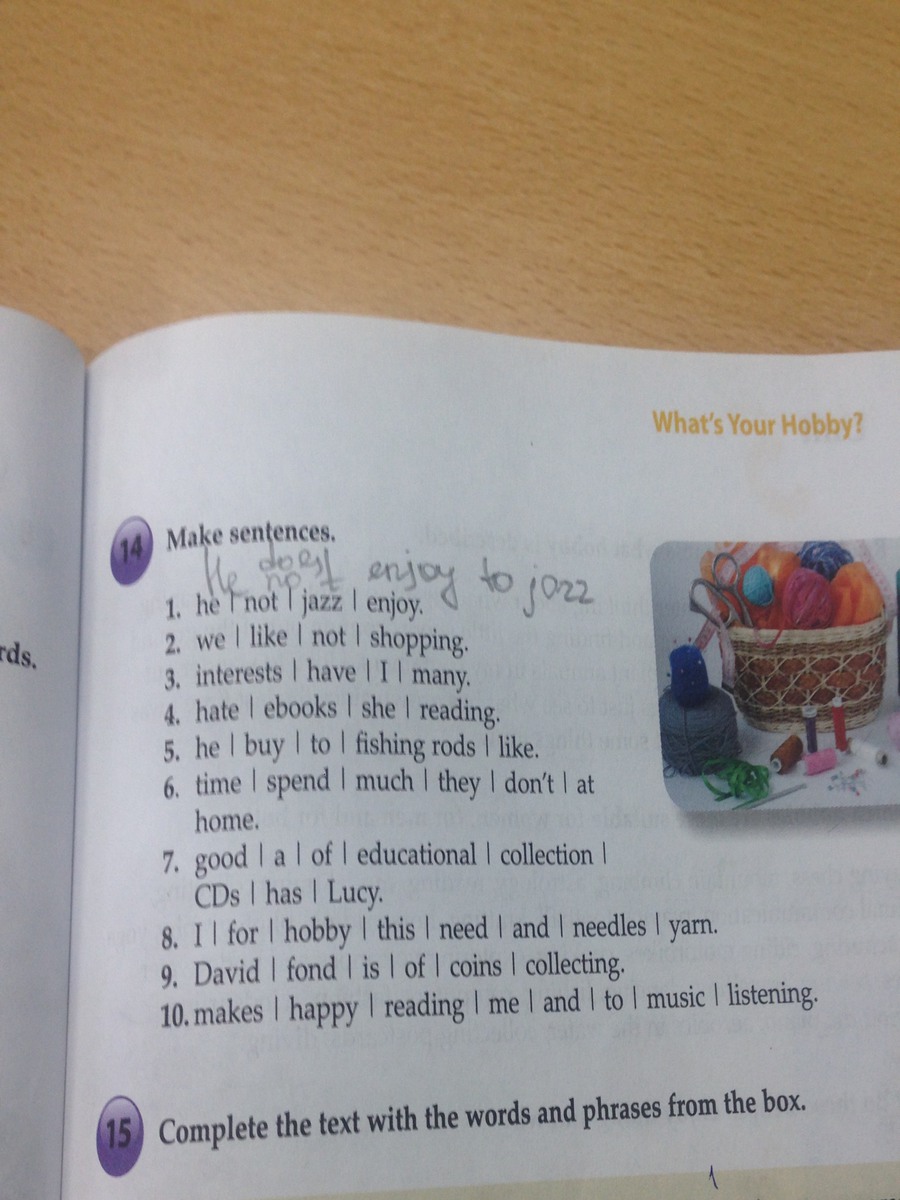 What's Your Hobby?
14 Make sentences.
He does not enjoy to jazz
1. he | not | jazz | enjoy.
2. we | like | not | shopping.
3. interests | have | I | many.
4. hate | ebooks | she | reading.
5. he | buy | to | fishing rods | like.
6. time | spend | much | they | don't | at
home.
7. good | a | of | educational | collection |
CDs | has | Lucy.
8. I | for | hobby | this | need | and | needles | yarn.
9. David | fond | is | of | coins | collecting.
10. makes | happy | reading | me | and | to | music | listening.
rds.
15 Complete the text with the words and phrases from the box.